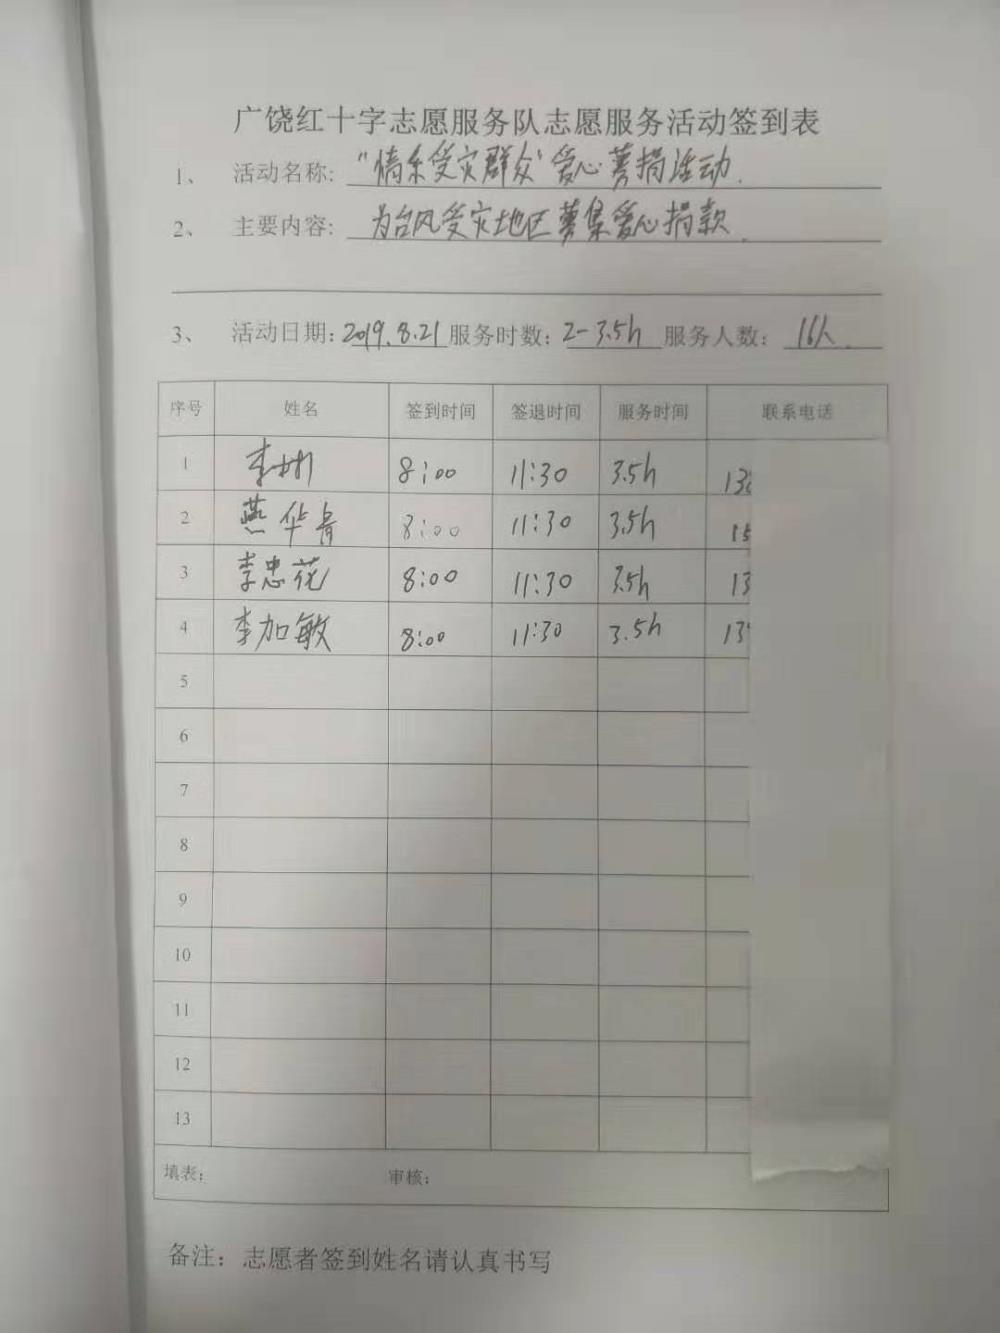 广饶红十字志愿服务队志愿服务活动签到表
1、 活动名称: “情系受灾群众”爱心募捐活动.
2、 主要内容: 为台风受灾地区募集爱心捐款.
3、 活动日期: 2019.8.21 服务时数: 2-3.5h 服务人数: 16人.
序号 姓名 签到时间 签退时间 服务时间 联系电话
1 李彬 8:00 11:30 3.5h 13
2 燕华青 8:00 11:30 3.5h 15
3 李忠花 8:00 11:30 3.5h 13
4 李加敏 8:00 11:30 3.5h 13
5
6
7
8
9
10
11
12
13
填表: 审核:
备注: 志愿者签到姓名请认真书写